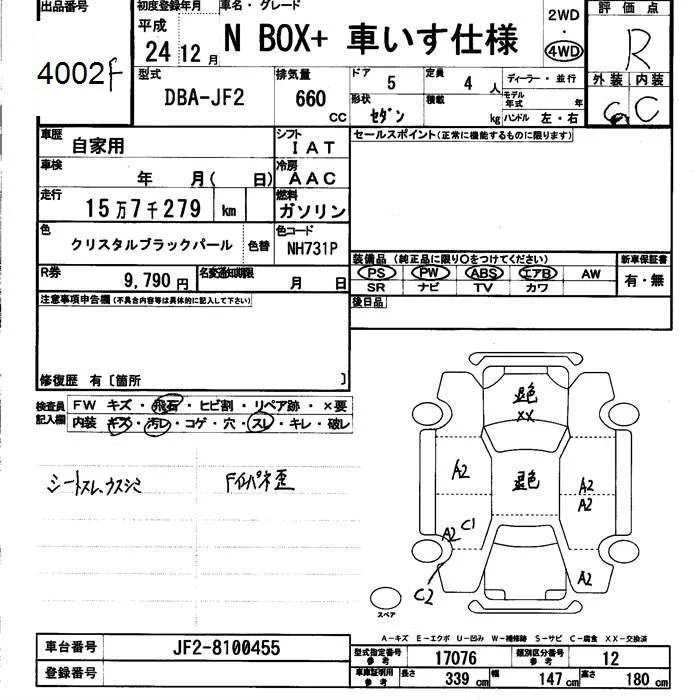 出品番号
4002F
初度登録年月
平成
24 12月
車名・グレード
N BOX+ 車いす仕様
2WD
・
4WD
評価点
R
外装 内装
C
型式
DBA-JF2
排気量
660
CC
ドア 5
定員 4 人
ディーラー・並行
形状
セダン
積載
kg
モデル年式 年
ハンドル 左・右
車歴
自家用
シフト
IAT
セールスポイント(正常に機能するものに限ります)
車検
年 月( 日)
冷房
AAC
走行
15万7千279 km
燃料
ガソリン
色
クリスタルブラックパール
色替
色コード
NH731P
装備品(純正品に限り○をつけてください)
新車保証書
PS PW ABS エアB AW
有・無
SR ナビ TV カワ
R券
9,790円
名変通知期限
月 日
後日品
注意事項申告欄(不具合内容等は具体的に記入して下さい)
修復歴 有〔箇所 〕
検査員記入欄
FW キズ・飛石・ヒビ割・リペア跡・×要
内装 キズ・汚レ・コゲ・穴・スレ・キレ・破レ
シートスレ、ウスシミ
Fインパネ歪
XX
A2
A2
A2
A2
C1
C2
A2
スペア
A-キズ E-エクボ U-凹み W-補修跡 S-サビ C-腐食 XX-交換済
車台番号
JF2-8100455
登録番号
型式指定番号
参考
17076
類別区分番号
参考
12
車庫証明用
参考
長さ 339 cm
幅 147 cm
高さ 180 cm